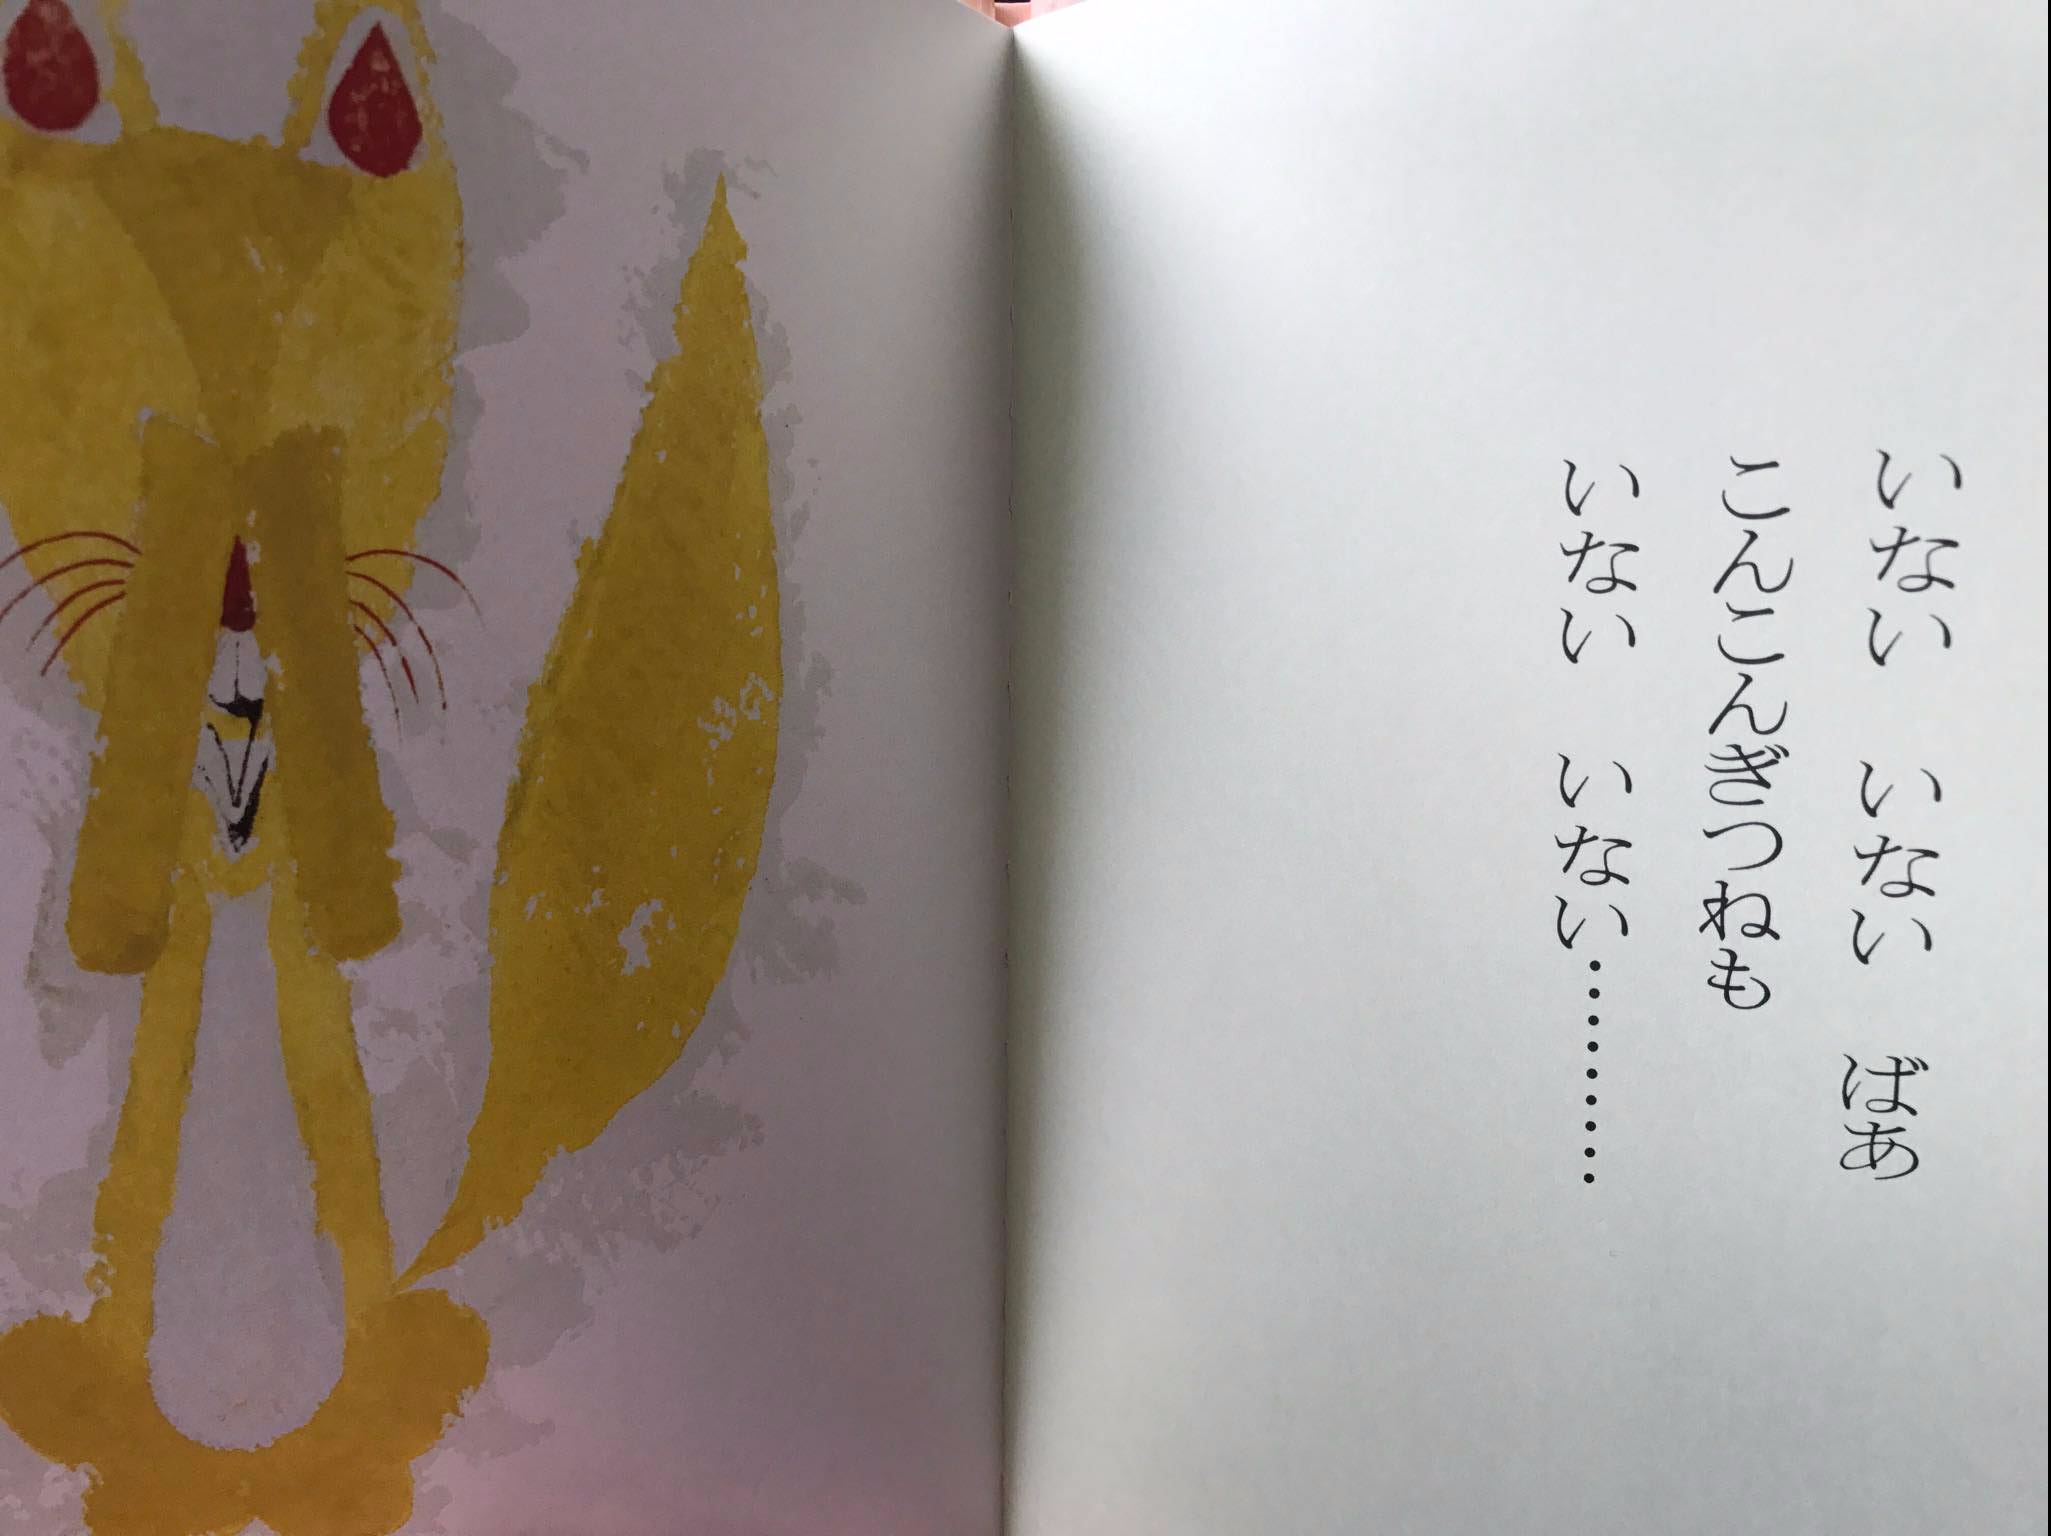 いない　いない　ばあ
こんこんぎつねも
いない　いない………